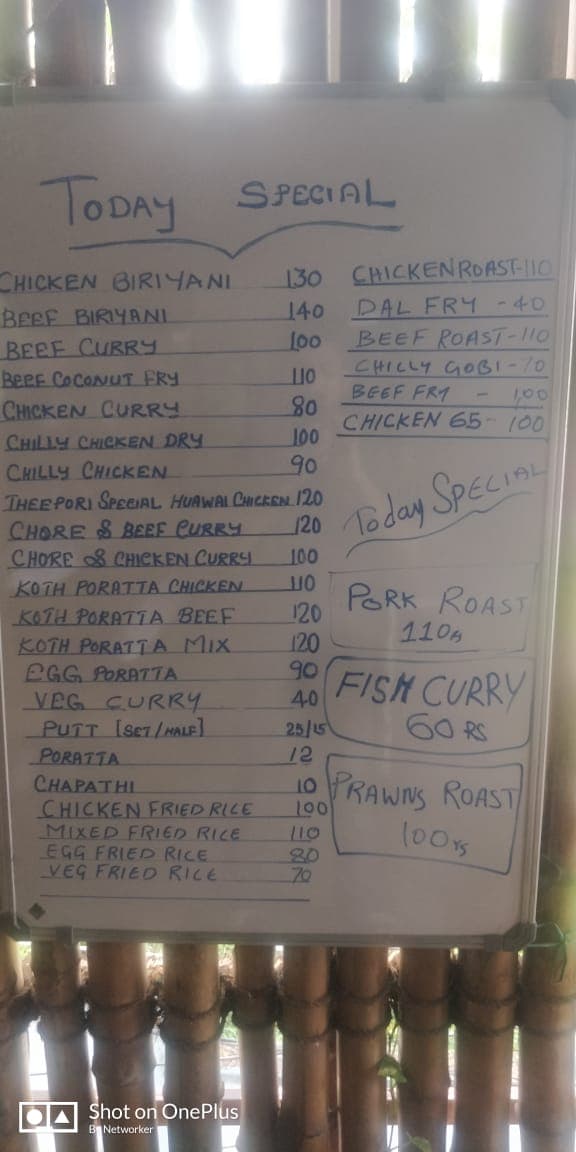 TODAY SPECIAL
CHICKEN BIRIYANI 130
BEEF BIRIYANI 140
BEEF CURRY 100
BEEF COCONUT FRY 110
CHICKEN CURRY 80
CHILLY CHICKEN DRY 100
CHILLY CHICKEN 90
THEEPORI SPECIAL HUAWAI CHICKEN 120
CHORE & BEEF CURRY 120
CHORE & CHICKEN CURRY 100
KOTH PORATTA CHICKEN 110
KOTH PORATTA BEEF 120
KOTH PORATTA MIX 120
EGG PORATTA 90
VEG CURRY 40
PUTT [SET/HALF] 25/15
PORATTA 12
CHAPATHI 10
CHICKEN FRIED RICE 100
MIXED FRIED RICE 110
EGG FRIED RICE 80
VEG FRIED RICE 70
CHICKEN ROAST-110
DAL FRY - 40
BEEF ROAST-110
CHILLY GOBI-70
BEEF FRY - 100
CHICKEN 65- 100
Today SPECIAL
PORK ROAST
110rs
FISH CURRY
60 RS
PRAWNS ROAST
100rs
Shot on OnePlus
By Networker